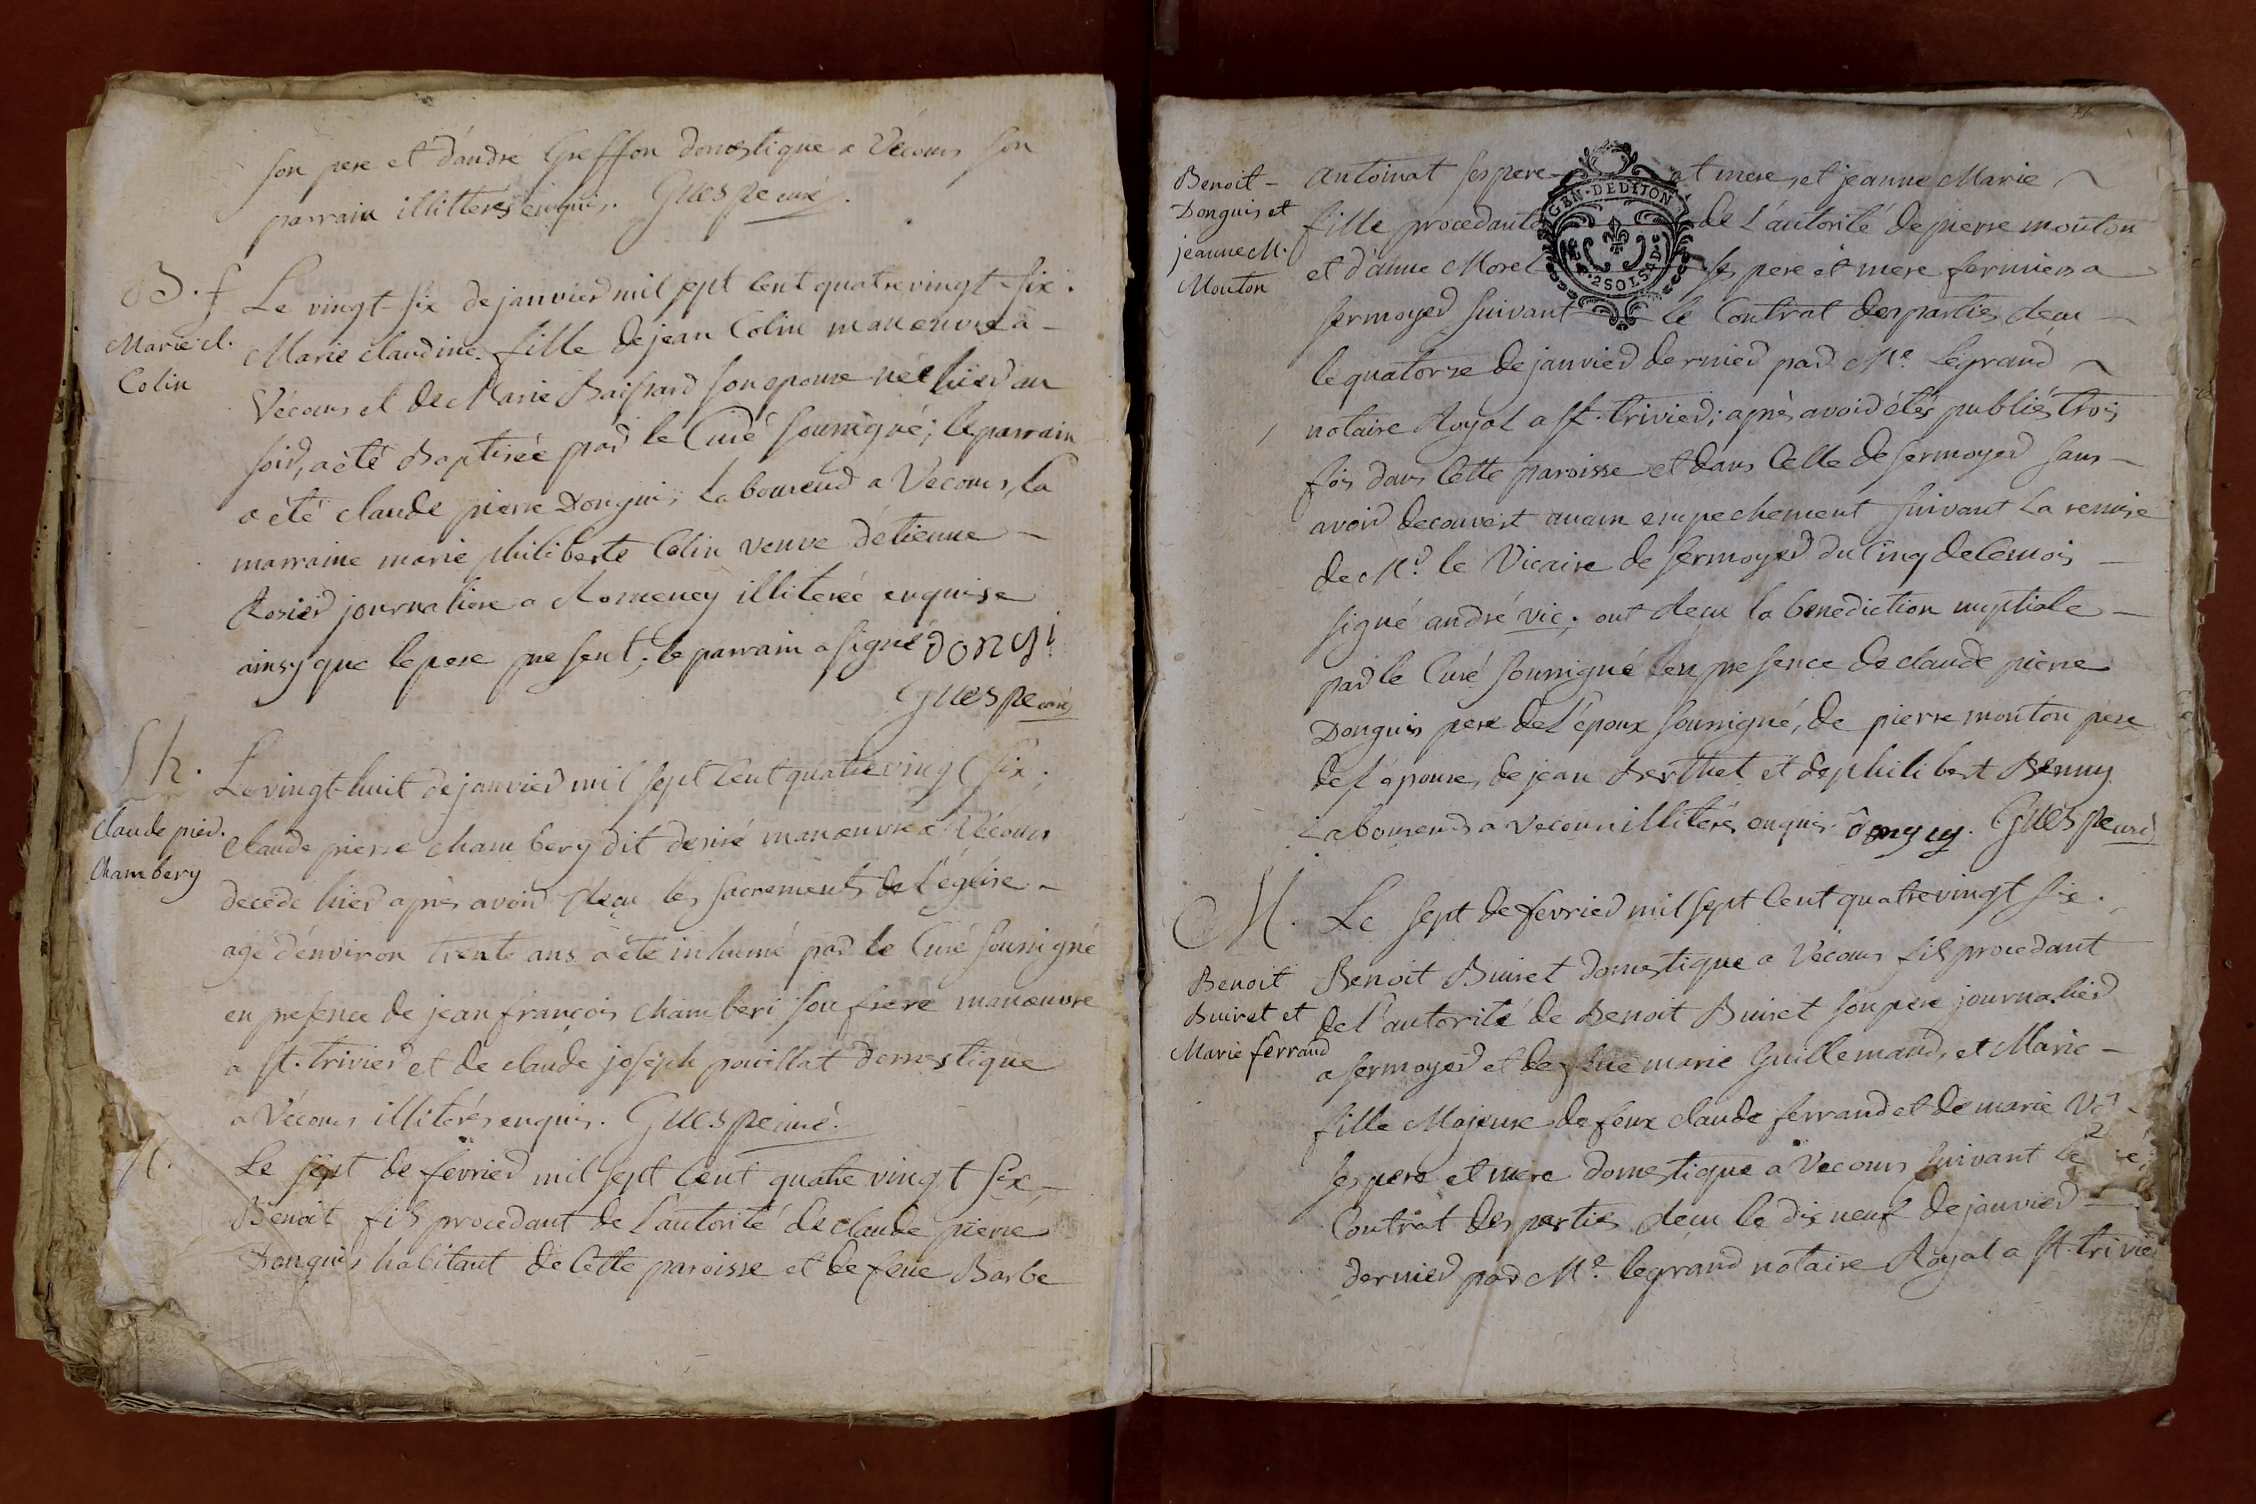 son pere et d'andré Greffon domestique a Vécours son
parrain illitterés enquis. Guespe curé.
B. f
Marie cl.
Colin
Le vingt-six de janvier mil sept cent quatre vingt-six.
Marie claudine fille de jean Colin manœuvre a
Vécours et de Marie son epouse née hier au
soir, a été Baptisée par le Curé soussigné; le parrain
a été claude pierre Donguis laboureur a Vecours, la
marraine marie philiberte Colin veuve d'etienne
Rosier journaliere a Romeney illiterée enquise
ainsy que le pere present; le parrain a signé
Guespe curé
Sh.
claude pier.
Chambery
Le vingt-huit de janvier mil sept cent quatre vingt six.
Claude pierre Chambery dit desiré manœuvre a Vécours
decede hier après avoir reçu les sacrements de l'église
agé d'environ trente ans a été inhumé par le Curé soussigné
en presence de jean françois Chamberi son frere manœuvre
a st. trivier et de claude joseph pouillat domestique
a Vécours illiterés enquis. Guespe curé.
M.
Le sept de fevrier mil sept cent quatre vingt six
Benoit fils procedant de l'autorité de claude pierre
Donguis habitant de cette paroisse et de feue Barbe
Benoit
Donguis et
jeanne M.
Mouton
antoinat ses pere et mere, et jeanne Marie
fille procedante de l'autorité de pierre mouton
et d'anne Morel ses pere et mere fermiers a
GEN. DE DIJON
2 SOLS
sermoyer suivant le Contrat des parties recu
le quatorze de janvier dernier par Me. Legrand
notaire Royal a st. trivier; après avoir étés publiés trois
fois dans cette paroisse et dans celle de sermoyer sans
avoir decouvert aucun empechement suivant la remise
de Mr. le Vicaire de sermoyer du cinq de ce mois
signé andré vic; ont recu la benediction nuptiale
par le Curé soussigné en presence de claude pierre
Donguis pere de l'époux soussigné, de pierre mouton pere
de l'epouse, de jean Berthet et de philibert
Laboureurs a vecours illiterés enquis. Guespe curé
M.
Benoit
Buiret et
Marie ferrand
Le sept de fevrier mil sept cent quatre vingt six.
Benoit Buiret domestique a Vécours fils procedant
de l'autorité de Benoit Buiret son pere journalier
a sermoyer et de feue marie Guillemaud, et Marie
fille Majeure de feux claude ferrand et de marie
ses pere et mere domestique a Vecours suivant le
Contrat des parties recu le dix neuf de janvier
dernier par Me. legrand notaire Royal a st. trivier